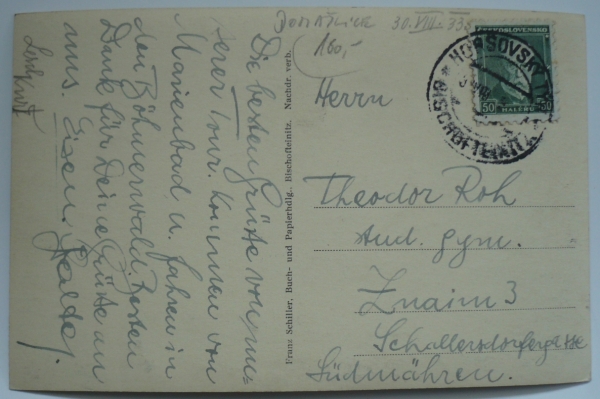 DOMAŽLICE 30.VIII-33
180,-
ČESKOSLOVENSKO
50 HALÉŘŮ 50
HORŠOVSKÝ TÝN
BISCHOFTEINITZ
Herrn
Theodor Roh
stud. gym.
Znaim 3
Schallersdorferstrasse
Südmähren.
Franz Schiller, Buch- und Papierhdlg. Bischofteinitz. Nachdr. verb.
Die besten Grüße von uns
serer Tour. Kommen von
Marienbad u. fahren in
den Böhmerwald. Besten
Dank für Deine Grüße an
uns.